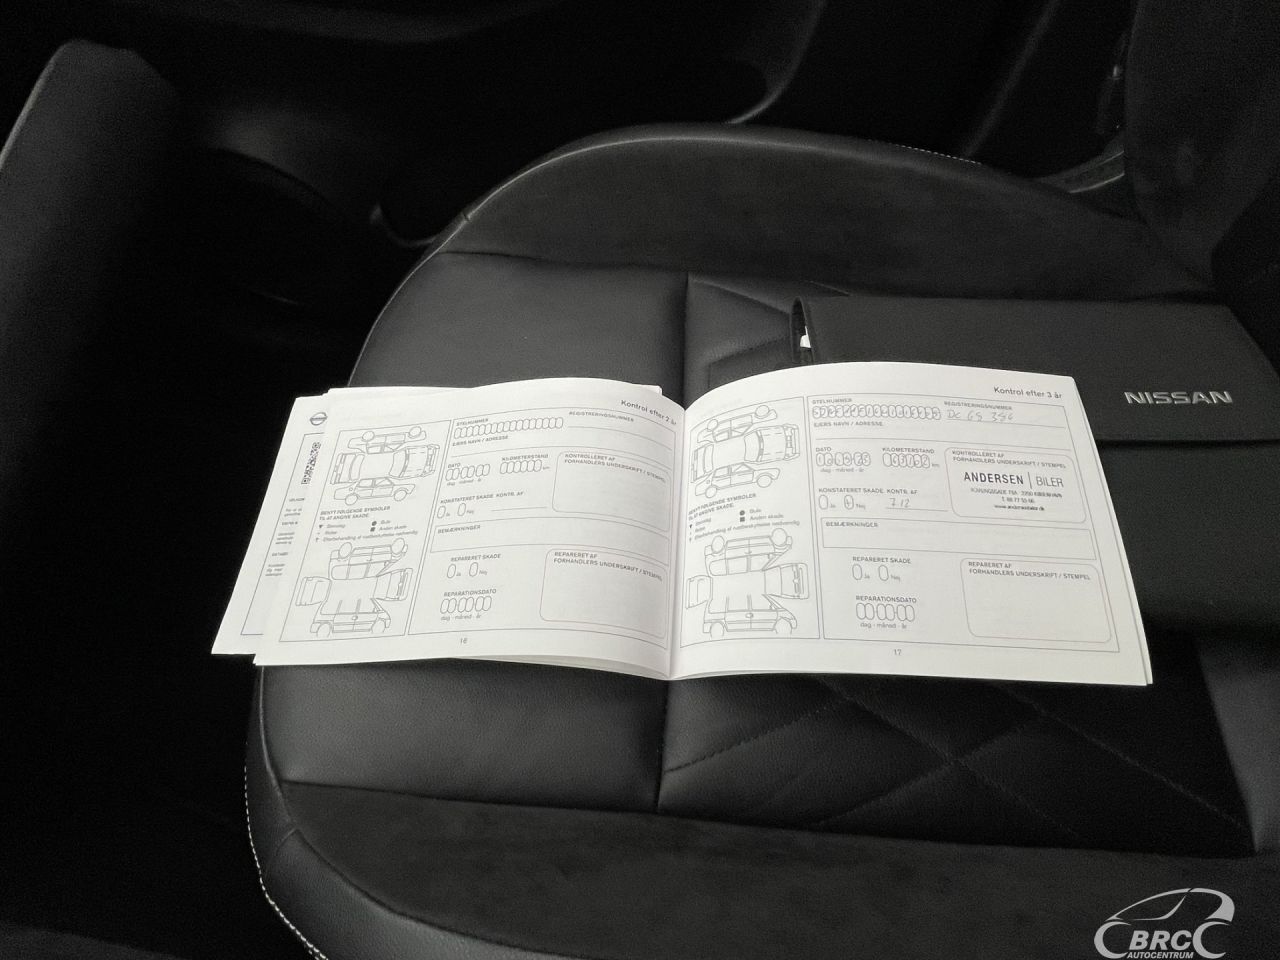 NISSAN
Kontrol efter 2 år
STELNUMMER
REGISTRERINGSNUMMER
EJERS NAVN / ADRESSE
DATO
dag - måned - år
KILOMETERSTAND
km
KONTROLLERET AF
FORHANDLERS UNDERSKRIFT / STEMPEL
KONSTATERET SKADE KONTR. AF
Ja Nej
BENYT FØLGENDE SYMBOLER
TIL AT ANGIVE SKADE:
Stenslag
Bule
Anden skade
Efterbehandling af rustbeskyttelse nødvendig
BEMÆRKNINGER
REPARERET SKADE
Ja Nej
REPARERET AF
FORHANDLERS UNDERSKRIFT / STEMPEL
REPARATIONSDATO
dag - måned - år
16
Kontrol efter 3 år
STELNUMMER
REGISTRERINGSNUMMER
DC 69 386
EJERS NAVN / ADRESSE
DATO
dag - måned - år
KILOMETERSTAND
km
KONTROLLERET AF
FORHANDLERS UNDERSKRIFT / STEMPEL
ANDERSEN | BILER
KONSTATERET SKADE KONTR. AF
Ja Nej
712
BENYT FØLGENDE SYMBOLER
TIL AT ANGIVE SKADE:
Stenslag
Bule
Anden skade
Efterbehandling af rustbeskyttelse nødvendig
BEMÆRKNINGER
REPARERET SKADE
Ja Nej
REPARERET AF
FORHANDLERS UNDERSKRIFT / STEMPEL
REPARATIONSDATO
dag - måned - år
17
BRC
AUTOCENTRUM